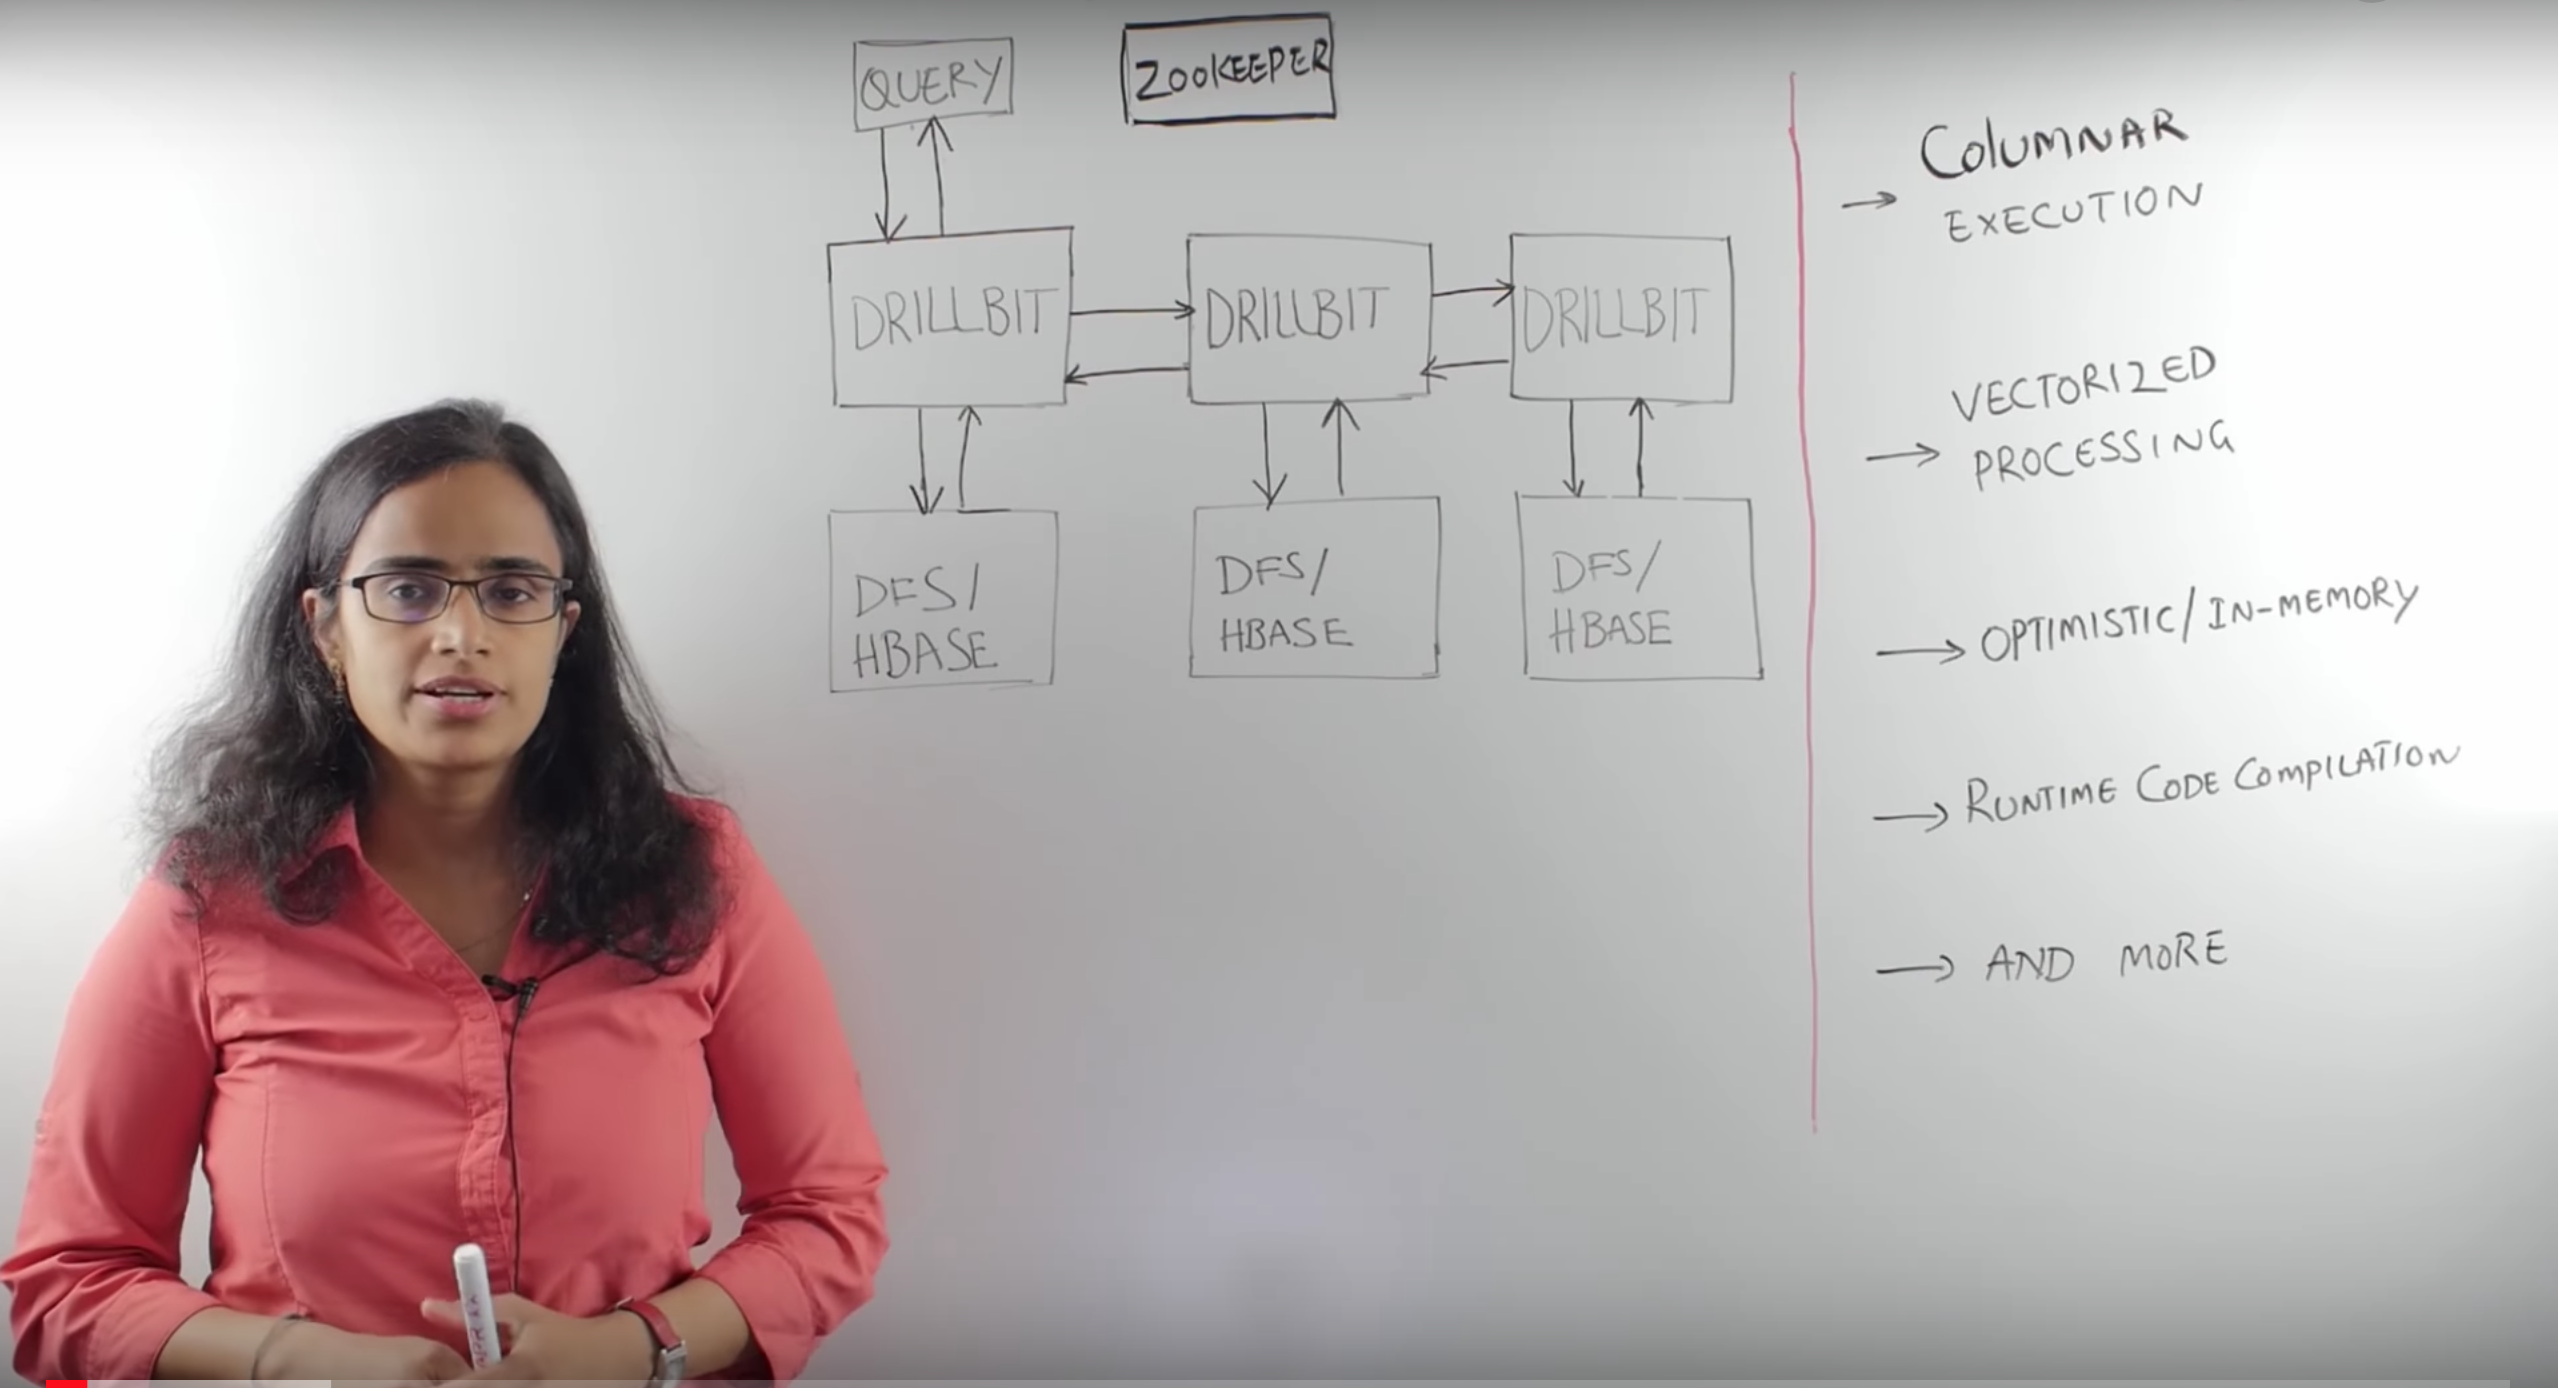 QUERY
ZOOKEEPER
DRILLBIT
DRILLBIT
DRILLBIT
DFS/
HBASE
DFS/
HBASE
DFS/
HBASE
COLUMNAR
EXECUTION
VECTORIZED
PROCESSING
OPTIMISTIC/IN-MEMORY
RUNTIME CODE COMPILATION
AND MORE